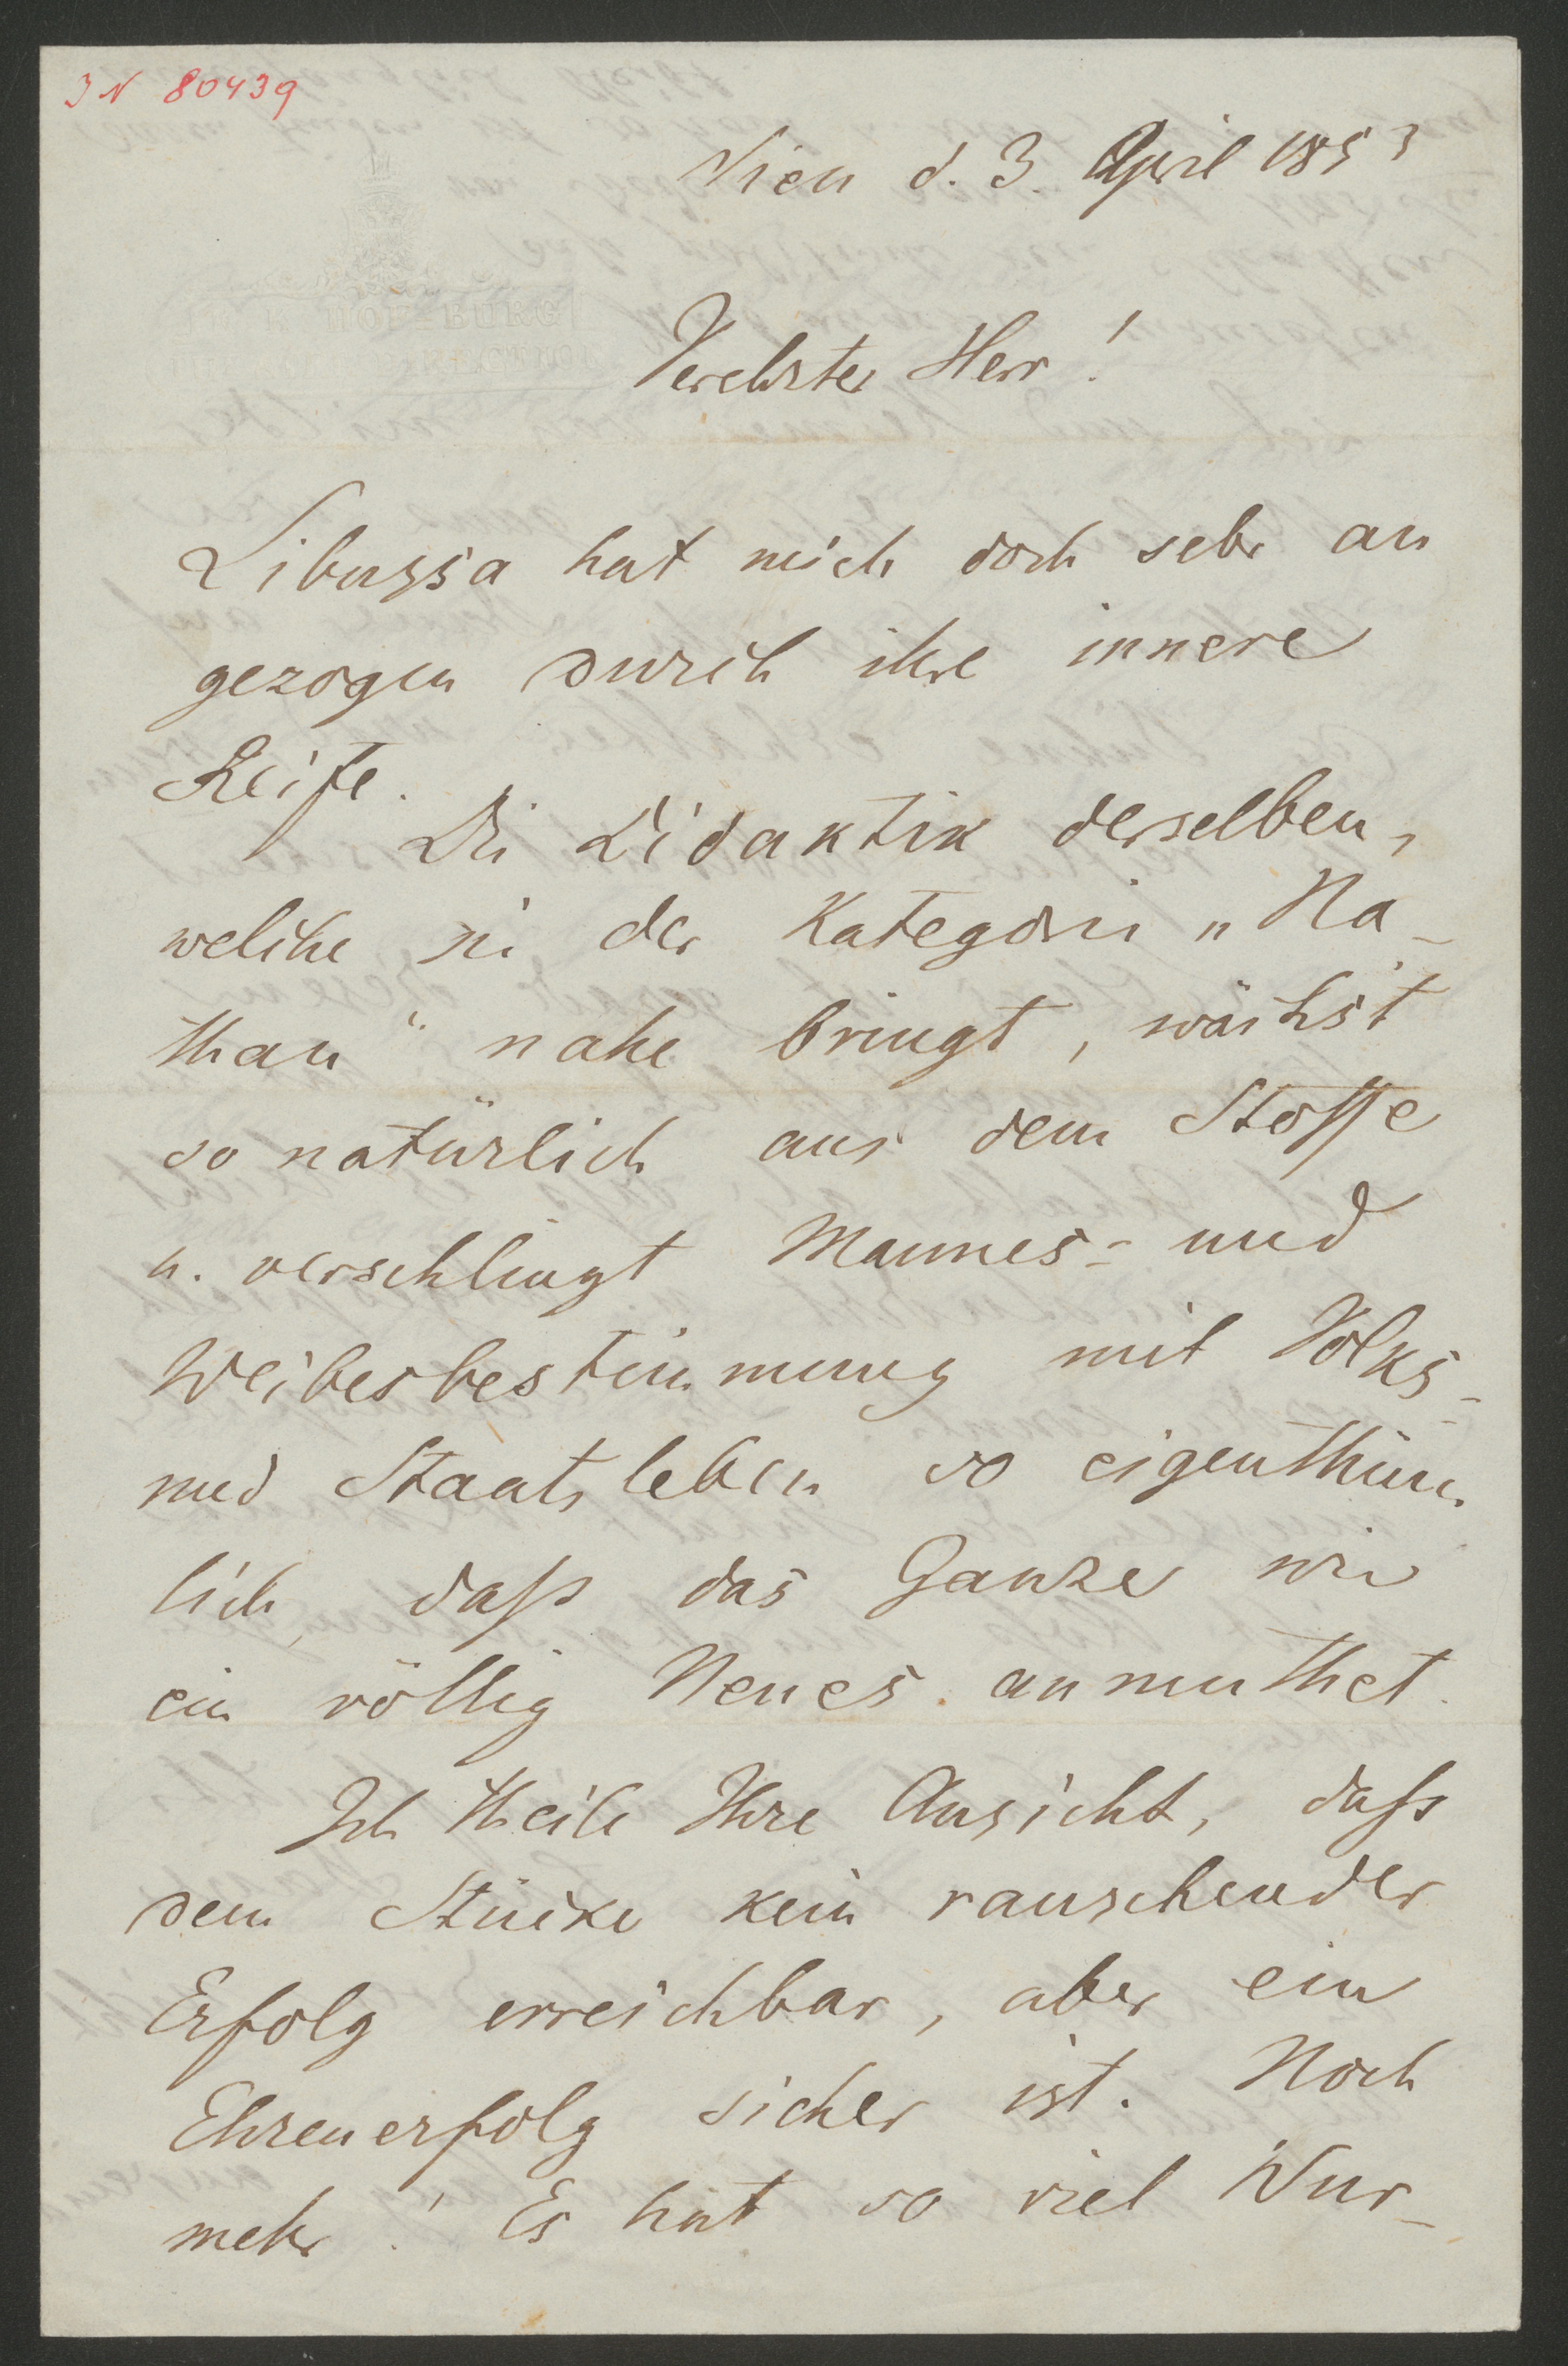 IN 80439
Wien d. 3. April 1853
K. K. HOF-BURG
Verehrter Herr!
Libussa hat mich doch sehr an
gezogen durch ihre innere
Reife.
Die Didaktik derselben,
welche sie der Kategorie „Na-
than“ nahe bringt, wächst
so natürlich aus dem Stoffe
u. verschlingt Mannes- und
Weiberbestimmung mit Volks-
und Staatsleben so eigenthüm
lich, daß das Ganze wie
ein völlig Neues anmuthet.
Ich theile Ihre Ansicht, daß
dem Stücke kein rauschender
Erfolg erreichbar, aber ein
Ehrenerfolg sicher ist. Noch
mehr! Es hat so viel Wur-